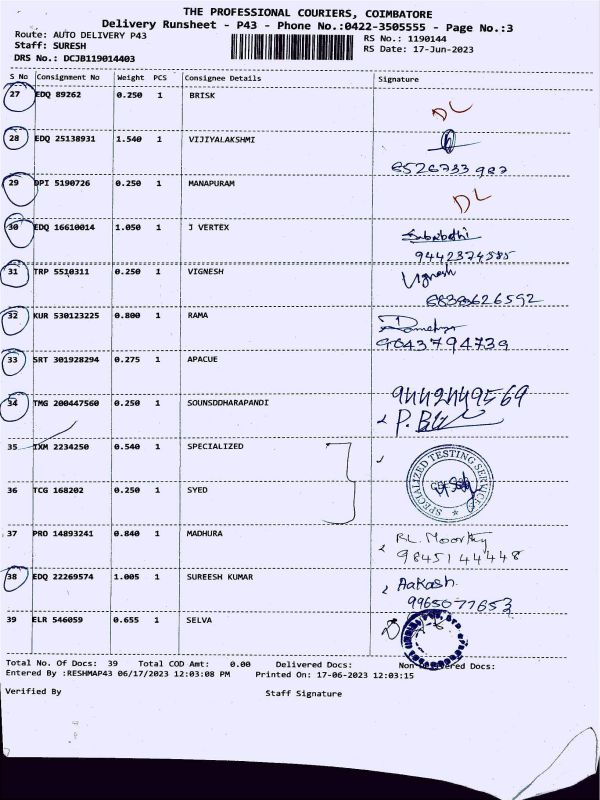 THE PROFESSIONAL COURIERS, COIMBATORE
Delivery Runsheet - P43 - Phone No.:0422-3505555 - Page No.:3
Route: AUTO DELIVERY P43
Staff: SURESH
DRS No.: DCJB119014403
RS No.: 1190144
RS Date: 17-Jun-2023
S No Consignment No Weight PCS Consignee Details Signature
27 EDQ 89262 0.250 1 BRISK DL
28 EDQ 25138931 1.540 1 VIJIYALAKSHMI
6526733987
29 DPI 5190726 0.250 1 MANAPURAM DL
30 EDQ 16610014 1.050 1 J VERTEX
9442374585
31 TRP 5510311 0.250 1 VIGNESH Vignesh
6383626592
32 KUR 530123225 0.800 1 RAMA
9043794739
33 SRT 301928294 0.275 1 APACUE
9442449569
34 TMG 200447560 0.250 1 SOUNSDDHARAPANDI
35 IXM 2234250 0.540 1 SPECIALIZED
SPECIALIZED TESTING SERVICE
36 TCG 168202 0.250 1 SYED
37 PRO 14893241 0.840 1 MADHURA RL. Moorthy
9845144448
38 EDQ 22269574 1.005 1 SUREESH KUMAR Aakash
9965077653
39 ELR 546059 0.655 1 SELVA
Total No. Of Docs: 39 Total COD Amt: 0.00 Delivered Docs: Non Delivered Docs:
Entered By :RESHMAP43 06/17/2023 12:03:08 PM Printed On: 17-06-2023 12:03:15
Verified By Staff Signature